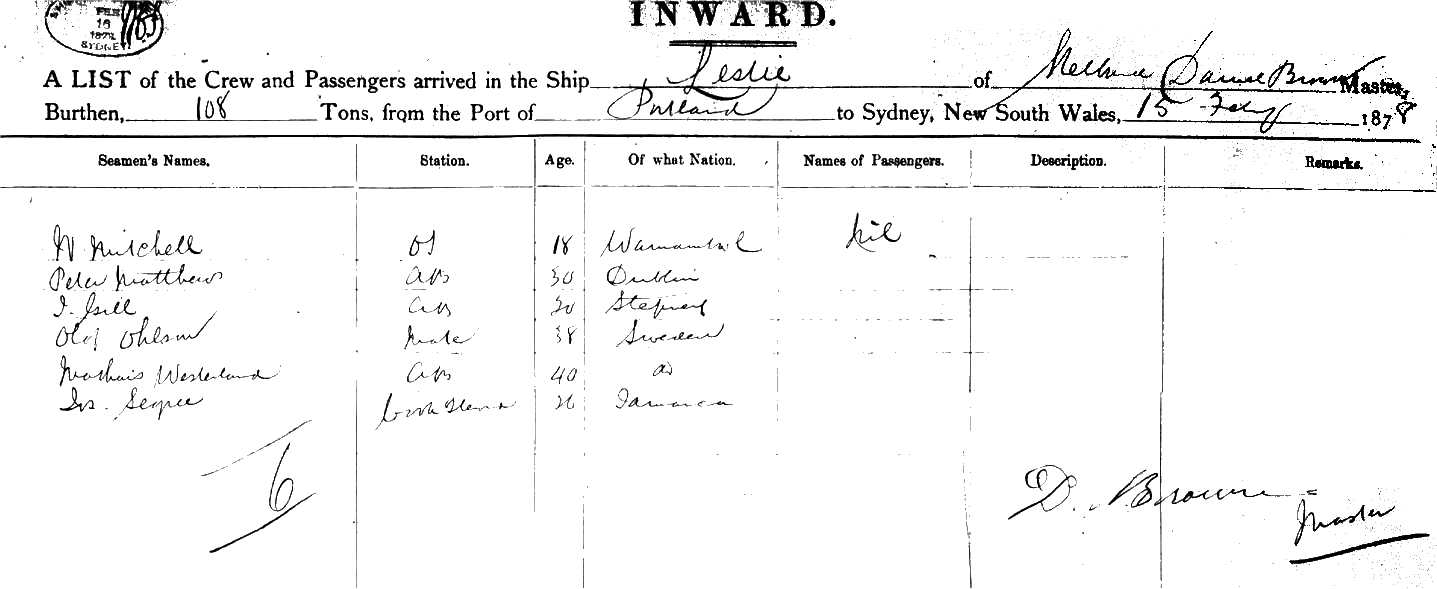 FEB
16
1878
SYDNEY
INWARD.
A LIST of the Crew and Passengers arrived in the Ship Leslie of Melbourne Brown Master,
Burthen, 108 Tons, from the Port of Portland to Sydney, New South Wales, 15 Feby 1878
Seamen's Names. Station. Age. Of what Nation. Names of Passengers. Description. Remarks.
W Mitchell OS 18 Nil
Peter Matthews AB 30 Dublin
AB Stepney
Olof Ohlson Mate 38 Sweden
Westerland AB 40 do
Jos. Cook Jamaica
6
D. Brown
Master